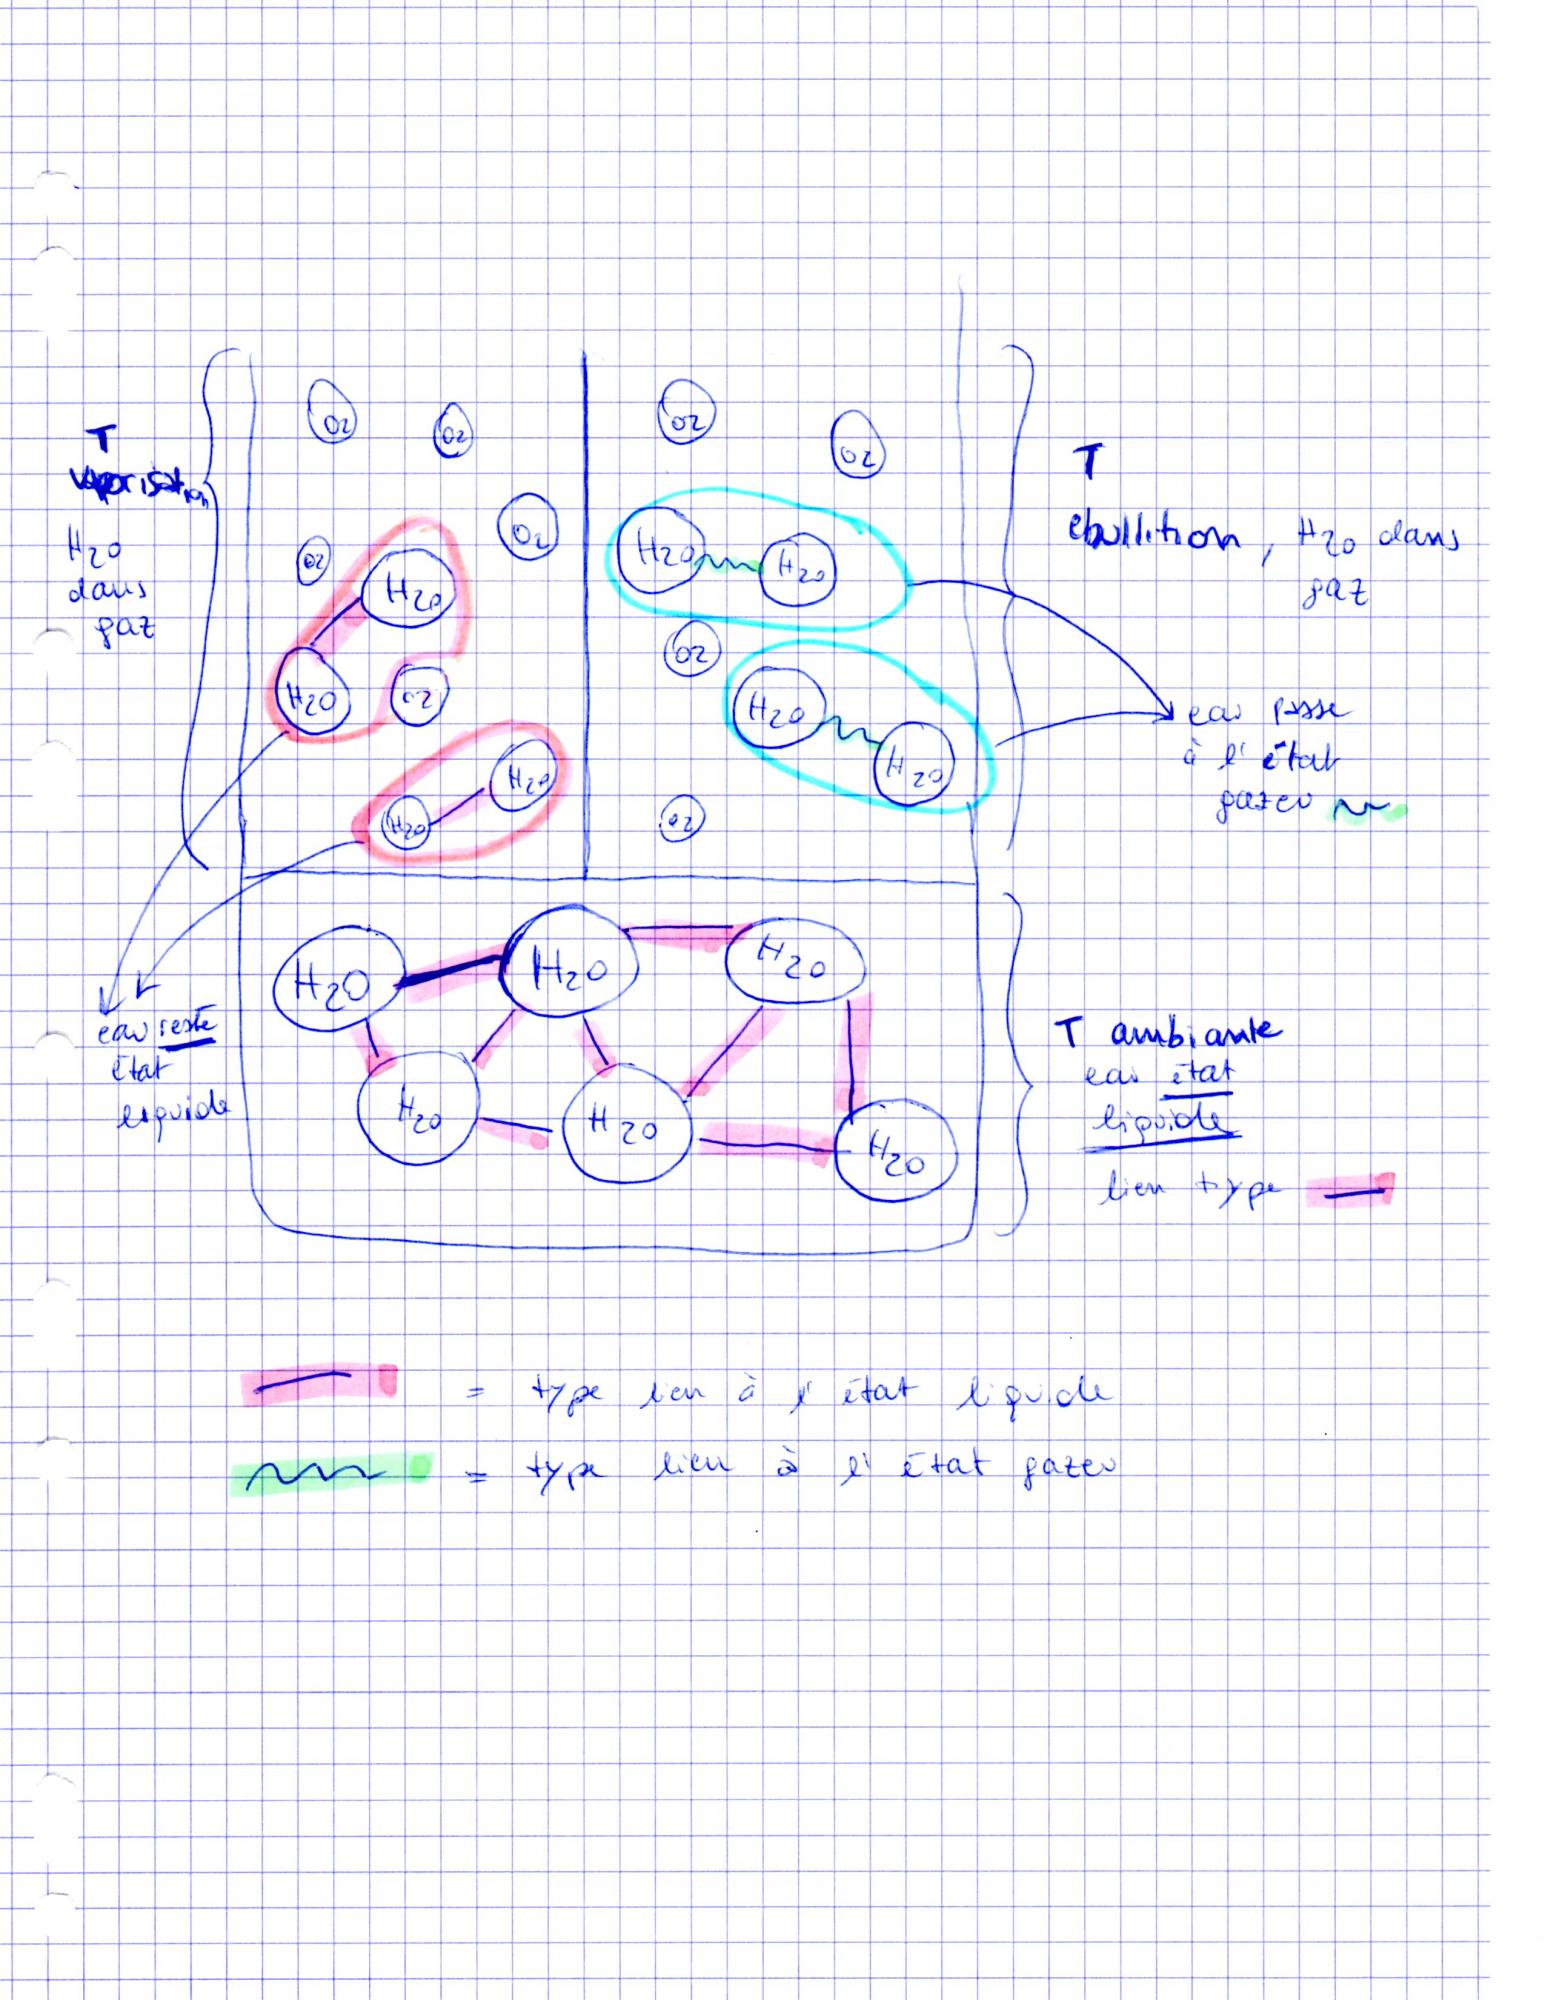 O2
O2
O2
O2
T
vaporisation
H2O
dans
gaz
O2
O2
H2O
H2O
O2
H2O
H2O
H2O
H2O
O2
H2O
H2O
O2
T
ébullition, H2O dans
gaz
eau passe
à l'état
gazeu
eau reste
état
liquide
H2O
H2O
H2O
H2O
H2O
H2O
T ambiante
eau état
liquide
lien type
= type lien à l'état liquide
= type lien à l'état gazeu